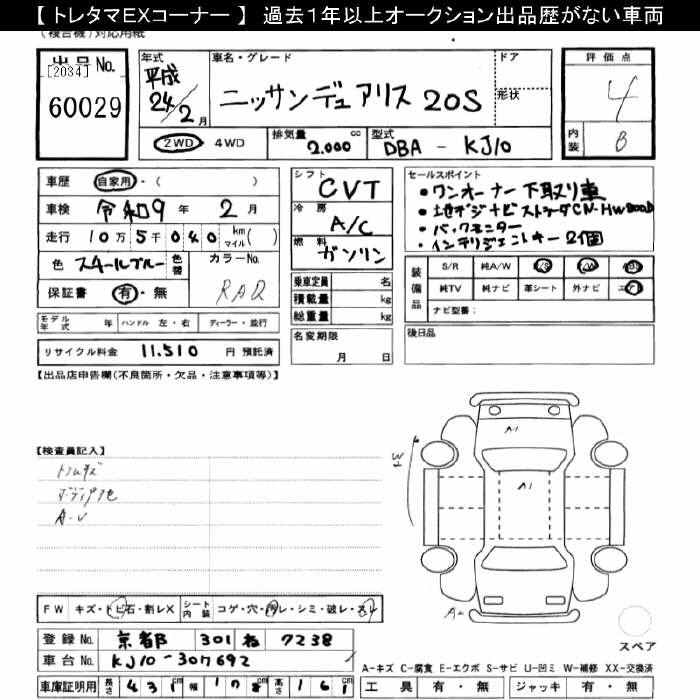 【 トレタマEXコーナー 】 過去１年以上オークション出品歴がない車両
(複合機)対応用紙
出品No. [2034] 60029
年式 平成 24/2月
車名・グレード ニッサンデュアリス 20S
ドア 形状
評価点 4
内装 B
2WD 4WD
排気量 cc 2.000
型式 DBA - KJ10
車歴 自家用・( )
車検 令和9年 2月
走行 10万5千040 km マイル( )
色 スチールブルー 色替 カラーNo. RAQ
保証書 有・無
シフト CVT
冷房 A/C
燃料 ガソリン
乗車定員 名
積載量 kg
総重量 kg
名変期限 月 日
セールスポイント
・ワンオーナー 下取り車
・地デジナビストラーダCN-HW800D
・バックモニター
・インテリジェントキー2個
装備品 S/R 純A/W P/S P/W
純TV 純ナビ 革シート 外ナビ
ナビ型番：
後日品
モデル年式 年 ハンドル 左・右 ディーラー・並行
リサイクル料金 11.510 円 預託済
【出品店申告欄(不良箇所・欠品・注意事項等)】
【検査員記入】
A-U
W
A1
A1
A2
FW キズ・トビ石・割レX シート内装 コゲ・穴・汚レ・シミ・破レ・スレ
登録No. 京都 301 ね 7238
車台No. KJ10-307692
スペア
A-キズ C-腐食 E-エクボ S-サビ U-凹ミ W-補修 XX-交換済
車庫証明用 長さ 431cm 幅 178cm 高さ 161cm
工具 有・無 ジャッキ 有・無